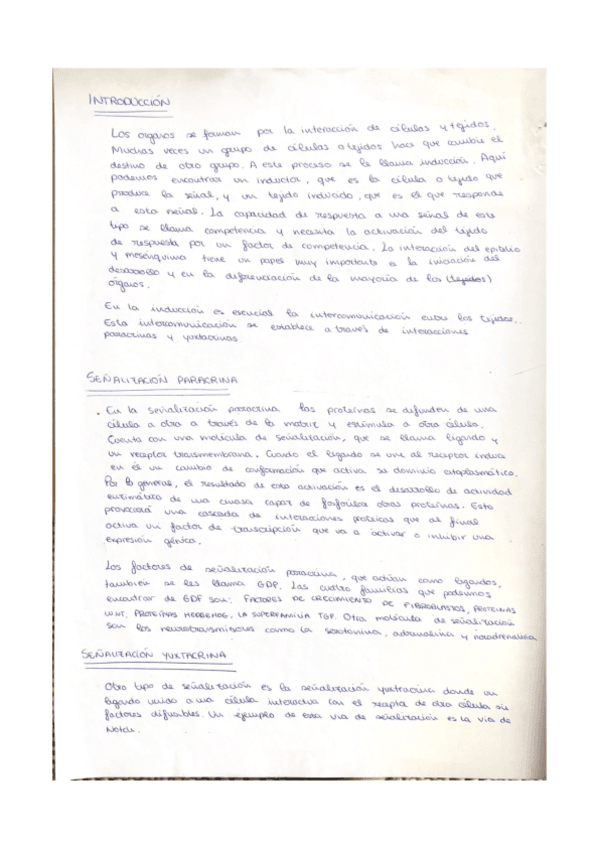 INTRODUCCIÓN
Los órganos se forman por la interacción de células y tejidos.
Muchas veces un grupo de células o tejidos hace que cambie el
destino de otro grupo. A este proceso se le llama inducción. Aquí
podemos encontrar un inductor, que es la célula o tejido que
produce la señal, y un tejido inducido, que es el que responde
a esta señal. La capacidad de respuesta a una señal de este
tipo se llama competencia y necesita la activación del tejido
de respuesta por un factor de competencia. La interacción del epitelio
y mesénquima tiene un papel muy importante a la iniciación del
desarrollo y en la diferenciación de la mayoría de los (tejidos)
órganos.
En la inducción es esencial la intercomunicación entre los tejidos.
Esta intercomunicación se establece a través de interacciones
paracrinas y yuxtacrinas
SEÑALIZACIÓN PARACRINA
En la señalización paracrina las proteínas se difunden de una
célula a otra a través de la matriz y estimula a otra célula.
Cuenta con una molécula de señalización, que se llama ligando y
un receptor transmembrana. Cuando el ligando se une al receptor induce
en él un cambio de conformación que activa su dominio citoplasmático.
Por lo general, el resultado de esta activación es el desarrollo de actividad
enzimática de una cinasa capaz de fosforilar otras proteínas. Esto
provocará una cascada de interacciones proteicas que al final
activa un factor de transcripción que va a activar o inhibir una
expresión génica.
Los factores de señalización paracrina, que actúan como ligandos,
también se les llama GDP. Las cuatro familias que podemos
encontrar de GDF son: FACTORES DE CRECIMIENTO DE FIBROBLASTOS, PROTEINAS
WNT, PROTEÍNAS HEDGEHOG, LA SUPERFAMILIA TGF. Otra molécula de señalización
son los neurotransmisores como la serotonina, adrenalina y noradrenalina
SEÑALIZACIÓN YUXTACRINA
Otro tipo de señalización es la señalización yuxtracrina donde un
ligando unido a una célula interactua con el receptor de otra célula sin
factores difusibles. Un ejemplo de esta vía de señalización es la vía de
Notch.